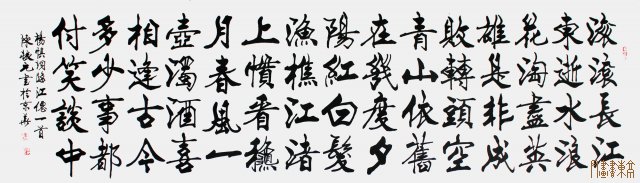 滾滾長江
東逝水浪
花淘盡英
雄是非成
敗轉頭空
青山依舊
在幾度夕
陽紅白髮
漁樵江渚
上慣看穐
月春風一
壺濁酒喜
相逢古今
多少事都
付笑談中
楊慎詞臨江僊一首
陳振元書於京華